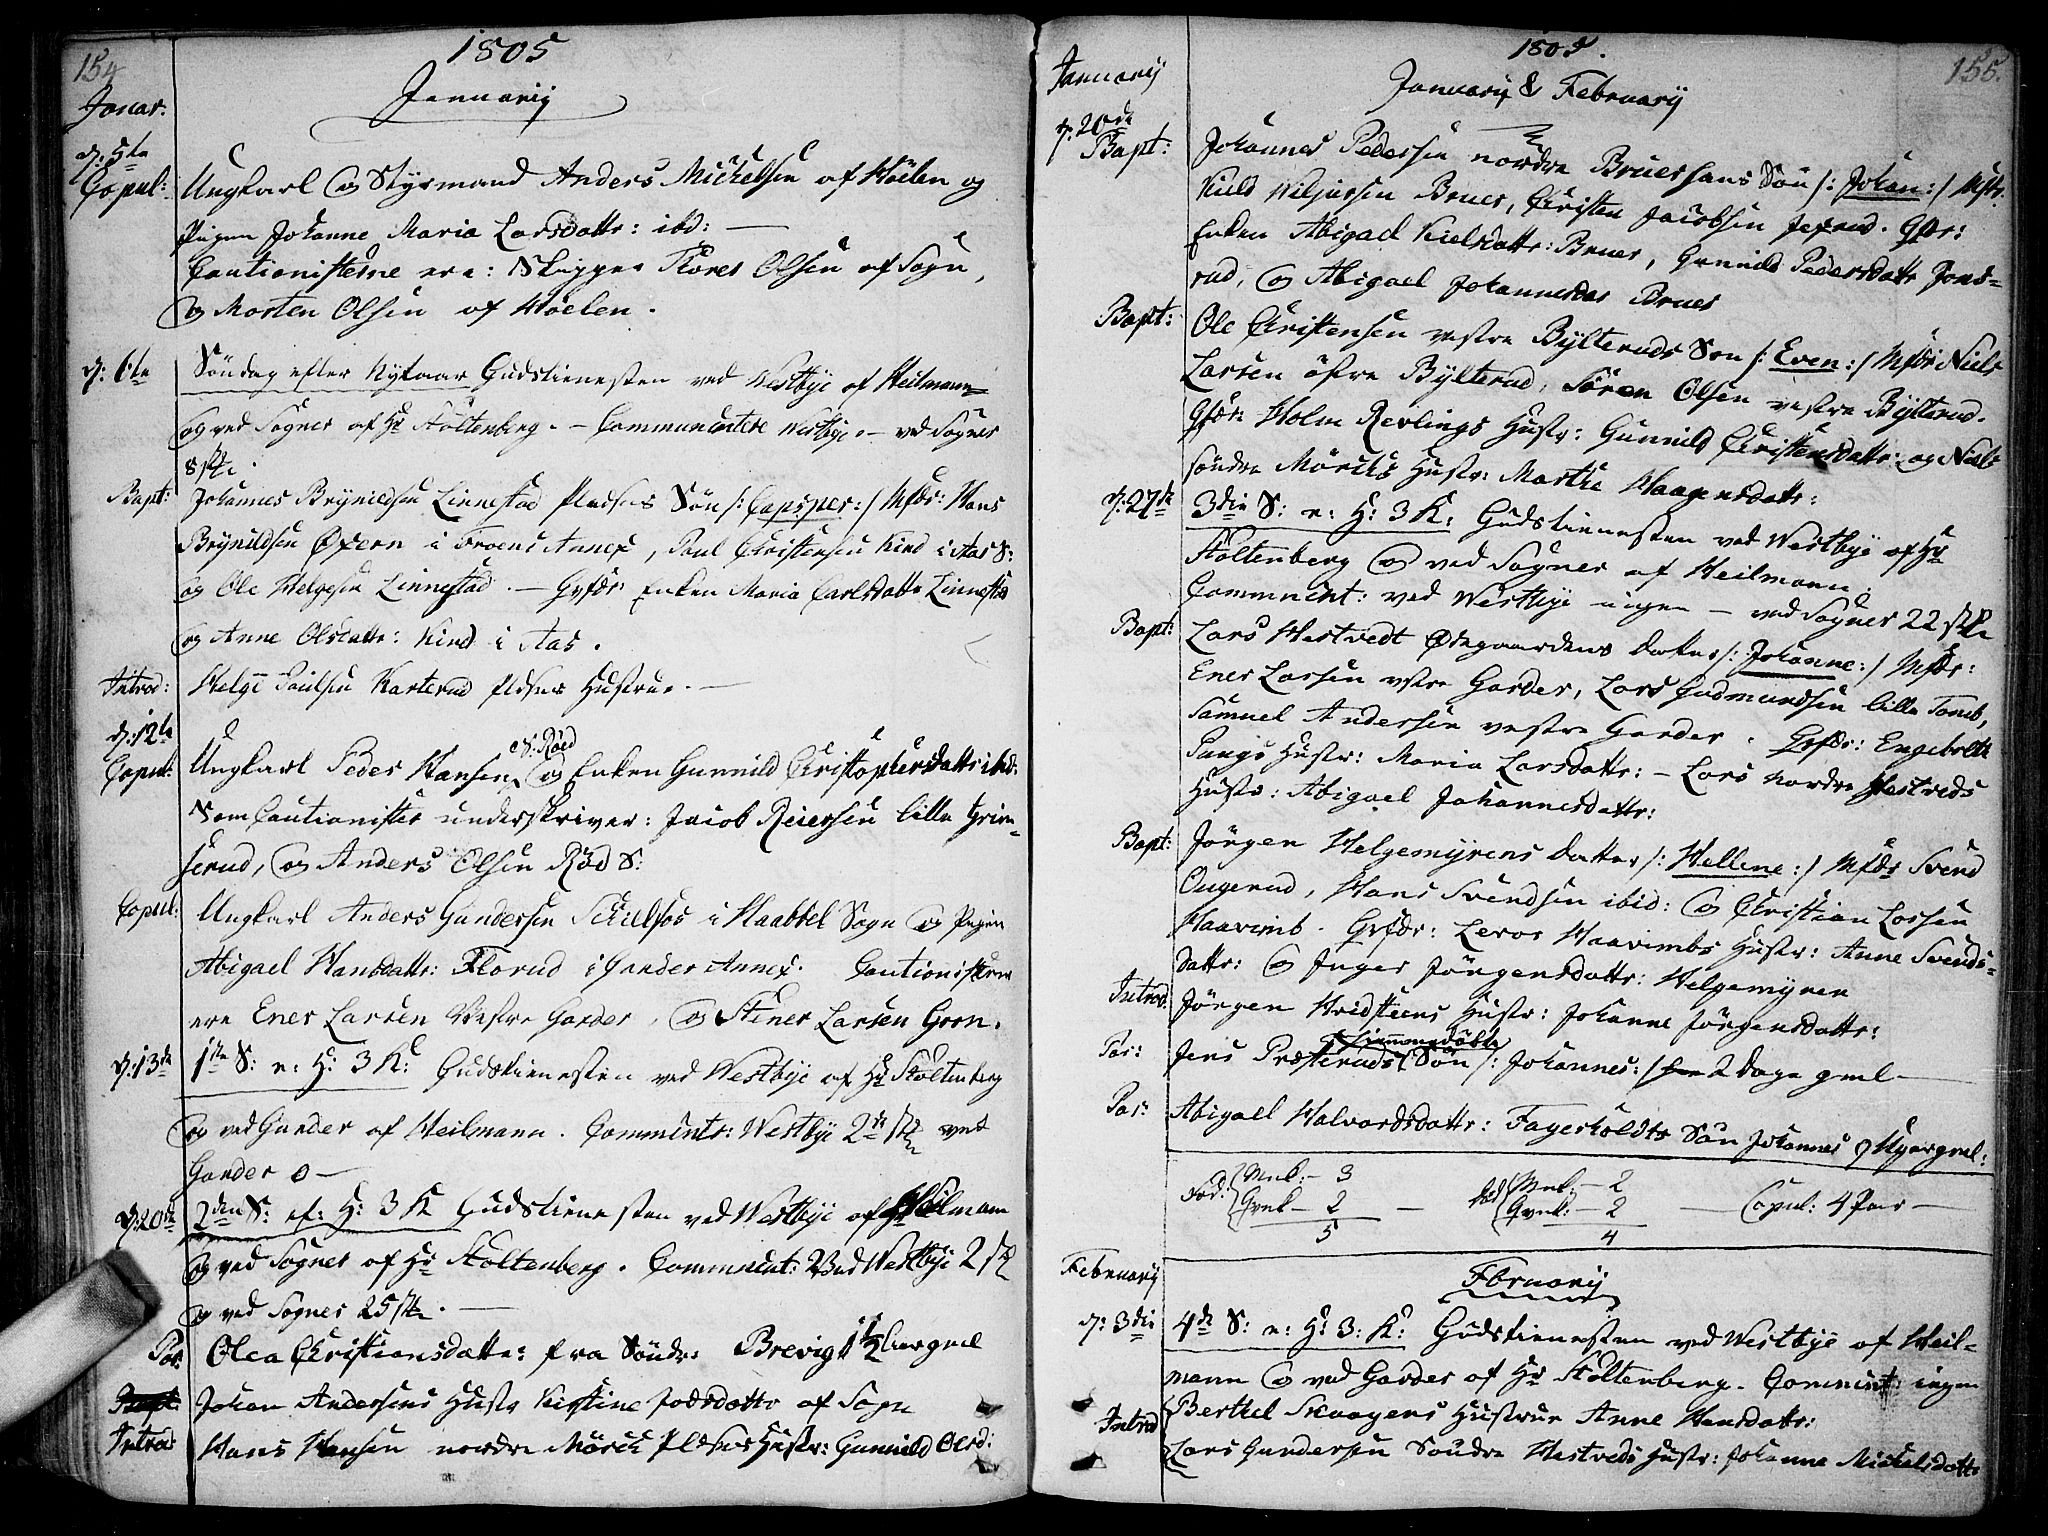 154
1805
Januarij
Januar:
d: 5te
Copul: Ungkarl og Styrmand Anders Michelsen af Hölen og
Pigen Johanne Maria Larsdattr: ibd: —
Cautionisterne ere: Skipper Flores Olsen af Sogn,
og Morten Olsen af Höelen.
d: 6te Söndag efter Nytaar Gudstienesten ved Westbye af Heilmann
og ved Sogner af Hr Stoltenberg. — Communicatere Westbye — ved Sogner
8 st.
Bapt: Johannes Brynildsen Linnestad Pladses Sön /: Capsper :/ Mfdr: Hans
Brynildsen Öfern i Froens Annex, Poul Christensen Kind i Aas S:
og Ole Helgesen Linnestad. — Gvfdr: Enken Maria Carlsdattr Linnestad
og Anne Olsdattr: Kind i Aas.
Introd: Helge Paulsen Karterud Pladses Hustrue. —
d: 12te
Copul: Ungkarl Peder Hansen S: Röed og Enken Gunnild Christophersdattr ibd:
Som Cautionister underskriver: Jacob Reiersen lille Grim-
serud, og Anders Olsen Röd S:
Copul: Ungkarl Anders Gundersen Skiellfos i Haabbel Sogn og Pigen
Abigael Hansdattr: Florud i Garder Annex. Cautionisterne
ere Ener Larsen Vestre Garder, og Stener Larsen Gron.
d: 13de 1ste S: e: H: 3 K: Gudstienesten ved Westbye af Hr Stoltenberg
og ved Garder af Heilmann. Commints: Westbye 2de st. ved
Garder 0 —
d: 20de 2den S: ef: H: 3 K Gudstienesten ved Westbye af Heilmann
og ved Sogner af Hr Stoltenberg. Commnint: Ved Westbye 2 st
og ved Sogner 25 st. —
Tor. Olea Christiansdatter fra Söndr: Brevig 1 1/2 aar gml
Johan Andersens Hustr Kirstine Joelsdattr af Sogn
Introd: Hans Hansen nordre Mörch Pladses Hustr: Gunnild Olsd:
155.
1805.
Januarij & Februarij
Januarij
d: 20de
Bapt: Johannes Pedersen nordre Bruershans Sön /: Johan :/ Mfdr:
Kield Weljersen Bruer, Christen Jacobsen Jexrud. Gvdr:
Enken Abigael Kielsdattr: Bruer, Gunnild Pedersdattr Jons-
rud, og Abigael Johannesdtr Bruer
Bapt: Ole Christensen vestre Bylteruds Son /: Even :/ Mfdr: Niels
Larsen öfre Bylterud, Sören Olsen vestre Bylterud.
Gvdr: Holm Revlings Hustr: Gunnild Christensdattr: og Niels
söndre Mörchs Hustr: Marthe Haagensdattr:
d: 27de 3die S: e: H: 3 K: Gudstienesten ved Westbye af Hr
Stoltenberg og ved Sogner af Heilmann.
Commnicnt: ved Westbye ingen — ved Sogner 22 st.
Bapt: Lars Hestvedt Ödegaardens Datter /: Johanne :/ Mfdr:
Ener Larsen vstre Garder, Lars Gudmundsen lille Tomb,
Samuel Andersen vestre Garder. Gvfdr: Engebrett
Paugs Hustr: Maria Larsdattr: — Lars nordre Hestveds
Hustr: Abigael Johannesdattr:
Bapt: Jörgen Helgemyrens Datter /: Hellene :/ Mfdr Svend
Ougerud, Hans Svendsen ibid: og Christian Larsen
Haavimb. Gvfdr: Levor Haavimbs Hustr: Anne Svends-
dattr: og Inger Jörgensdattr: Helgemyren
Introd: Jörgen Hvidstiens Hustr: Johanne Jörgensdattr:
Tor: Jens Præsteruds Hiemmedöbte Sön /: Johannes :/ 2 Dage gml —
Tor: Abigael Halvordsdattr: Fagerholdts Sön Johannes 7 Uger gml:
Fod: Mnk — 3 — Död Mnk: — 2 — Copul: 4 Par —
Qvnk — 2 Qvnk: — 2
5 4
Februarij
Fbruarij
d: 3die 4de S: e: H: 3: K: Gudstienesten ved Westbye af Heil-
mann og ved Garder af Hr Stoltenberg. Commint: ingen
Introd Berthel Skaugens Hustrue Anne Hansdattr:
Lars Gundersen Söndre Hestveds Hustr: Johanne Mickelsdattr